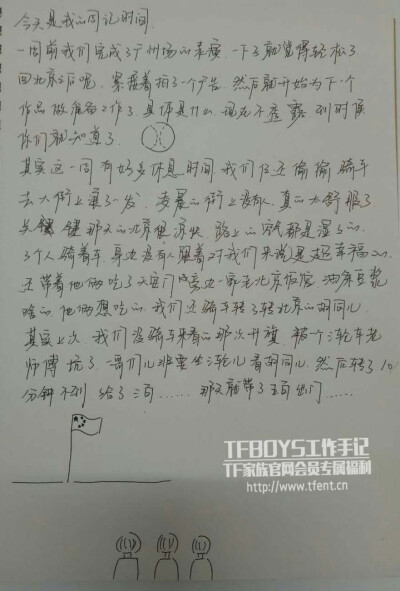 今天是我的周记时间.
一周前我们完成了广州场的录制,一下子就觉得轻松了
回北京之后呢,紧接着拍了一个广告.然后就开始为下一个
作品做准备工作了.具体是什么,现在不透露,到时候
你们就知道了.
其实这一周有好多休息时间,我们仨还偷偷骑车
去大街上晃了一发.凌晨的街上没有人,真的太舒服了.
关键那天的北京很凉快,路上的空气都是湿了的.
3个人骑着车,身边没有人跟着对我们来说是超幸福的.
还带着他俩吃了天安门旁边一家老北京饭馆,油条豆浆
啥的,他俩想吃的,我们还骑车转了转北京的胡同儿.
其实上次,我们没骑车来看的那次升旗,被一个三轮车老
师傅坑了.哥们儿非要坐三轮儿看胡同儿.然后转了10
分钟不到,给了三百......那天就带了五百出门......
TFBOYS工作手记
TF家族官网会员专属福利
http://www.tfent.cn